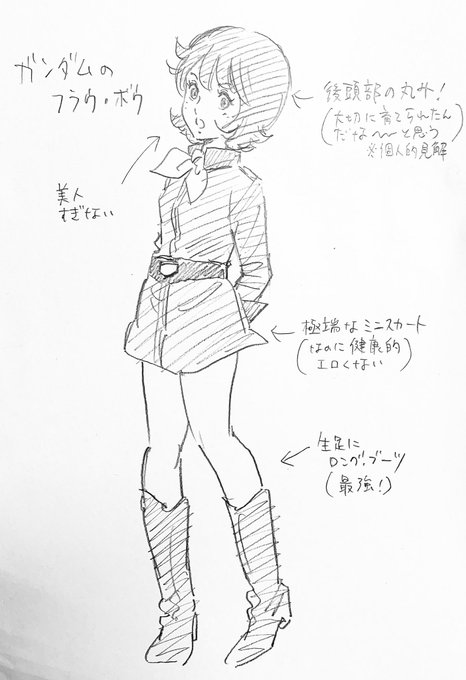 ガンダムの
フラウ・ボウ
美人
すぎない
後頭部の丸み!
(大切に育てられたん
だな〜〜と思う)
※個人的見解
極端なミニスカート
(なのに健康的)
エロくない
生足に
ロングブーツ
(最強!)